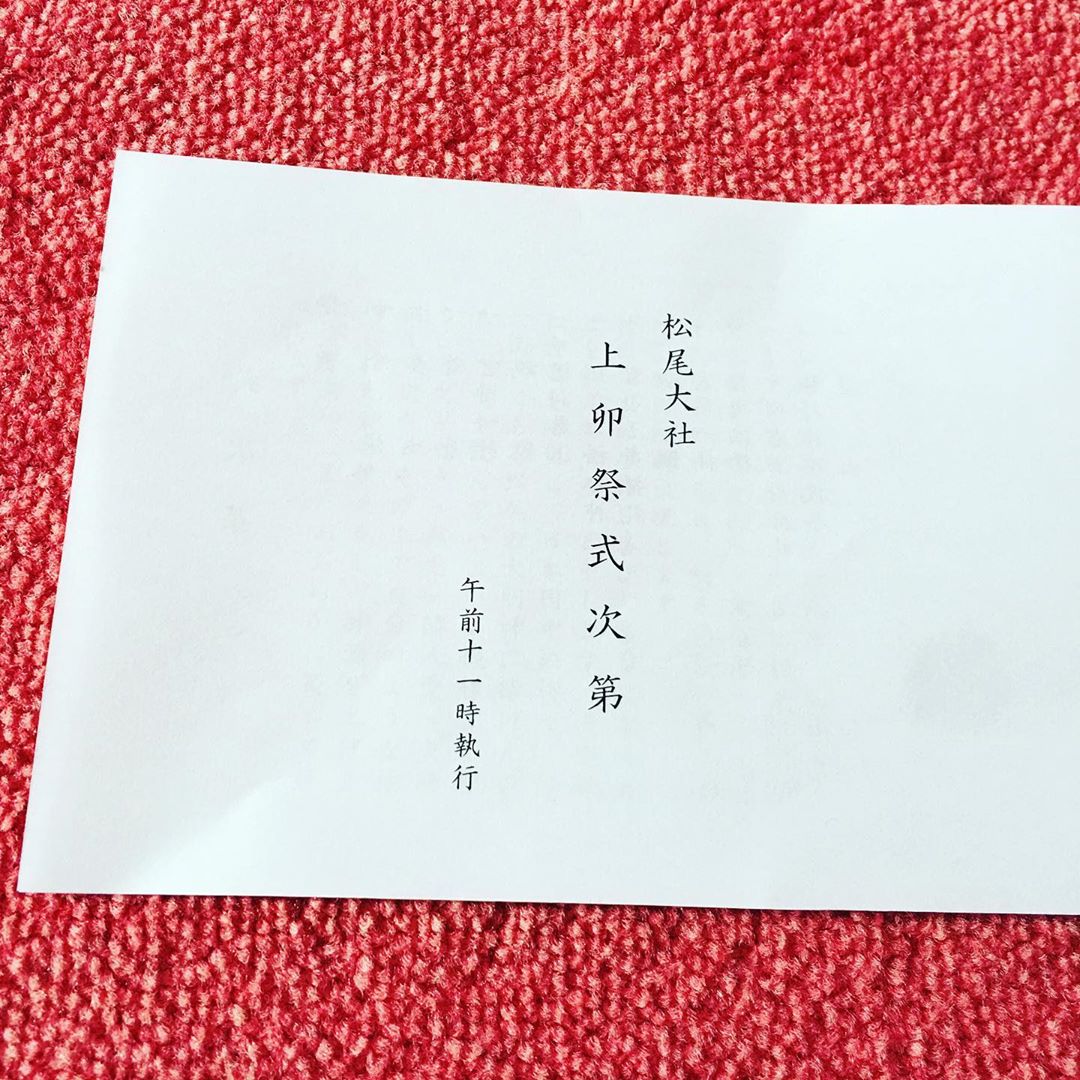 松尾大社
上卯祭式次第
午前十一時執行